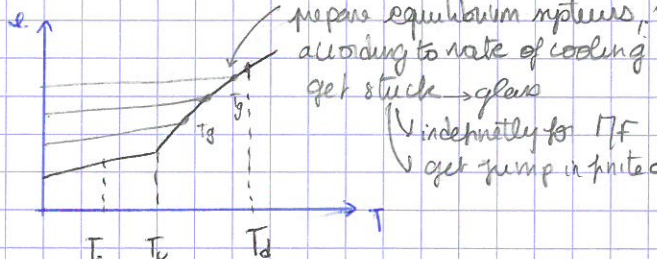 e
prepare equilibrium systems,
according to rate of cooling
get stuck → glass
Tg
indefinetly for MF
Tg
get jump in finite d
T
T
Tk
Td